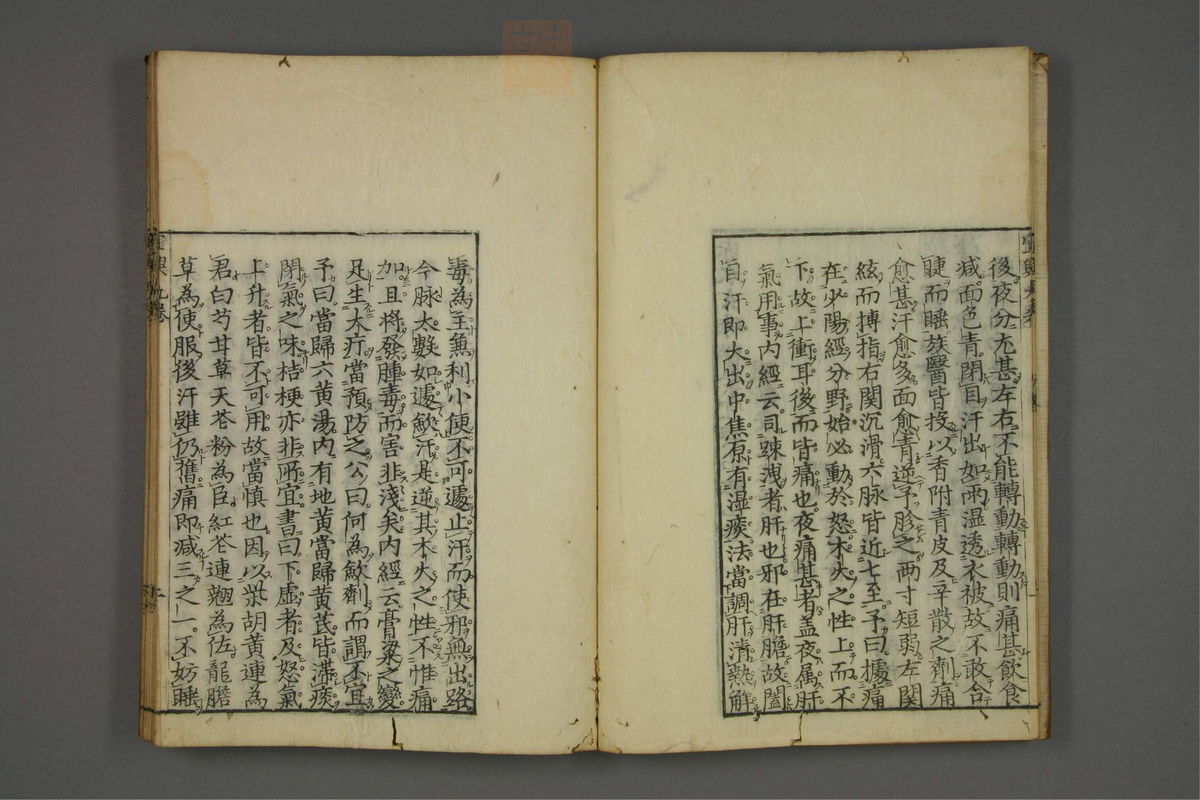 後夜分尤甚左右不能轉動轉動則痛甚飲食
减面色青閉目汗出如雨湿透衣被故不敢合
睫而睡族醫皆投以香附青皮及辛散之劑痛
愈甚汗愈多面愈青逆予胗之两寸短弱左関
絃而搏指右関沉滑六脉皆近七至予曰據痛
在少陽經分野始必動於怒木火之性上而不
下故上衝耳後而皆痛也夜痛甚者盖夜属肝
氣用事内經云司踈洩者肝也邪在肝膽故闔
目汗即大出中焦原有湿痰法當調肝清熱解
毒為主兼利小便不可遽止汗而使邪無出路
今脉太數如遽歛汗是逆其木火之性不惟痛
加且將發腫毒而害非淺矣内經云膏粱之變
足生大疔當預防之公曰何為歛劑而謂不宜
予曰當歸六黄湯内有地黄當歸黄芪皆滞痰
閉氣之味桔梗亦非所宜書曰下虛者及怒氣
上升者皆不可用故當慎也因以柴胡黄連為
君白芍甘草天花粉為臣紅花連翹為佐龍膽
草為使服後汗雖仍舊痛即减三之一不妨睡